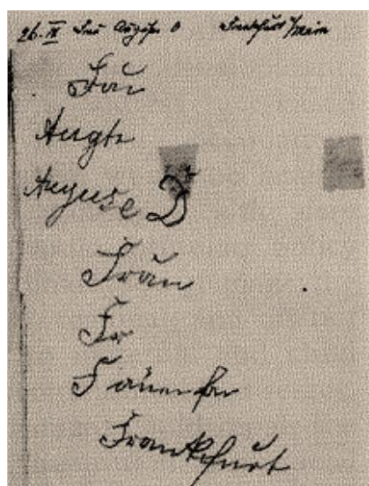 26. IX Frau Auguste D Frankfurt/Main
Frau
Augte
Auguse D
Fraun
Fr
Frankfurt